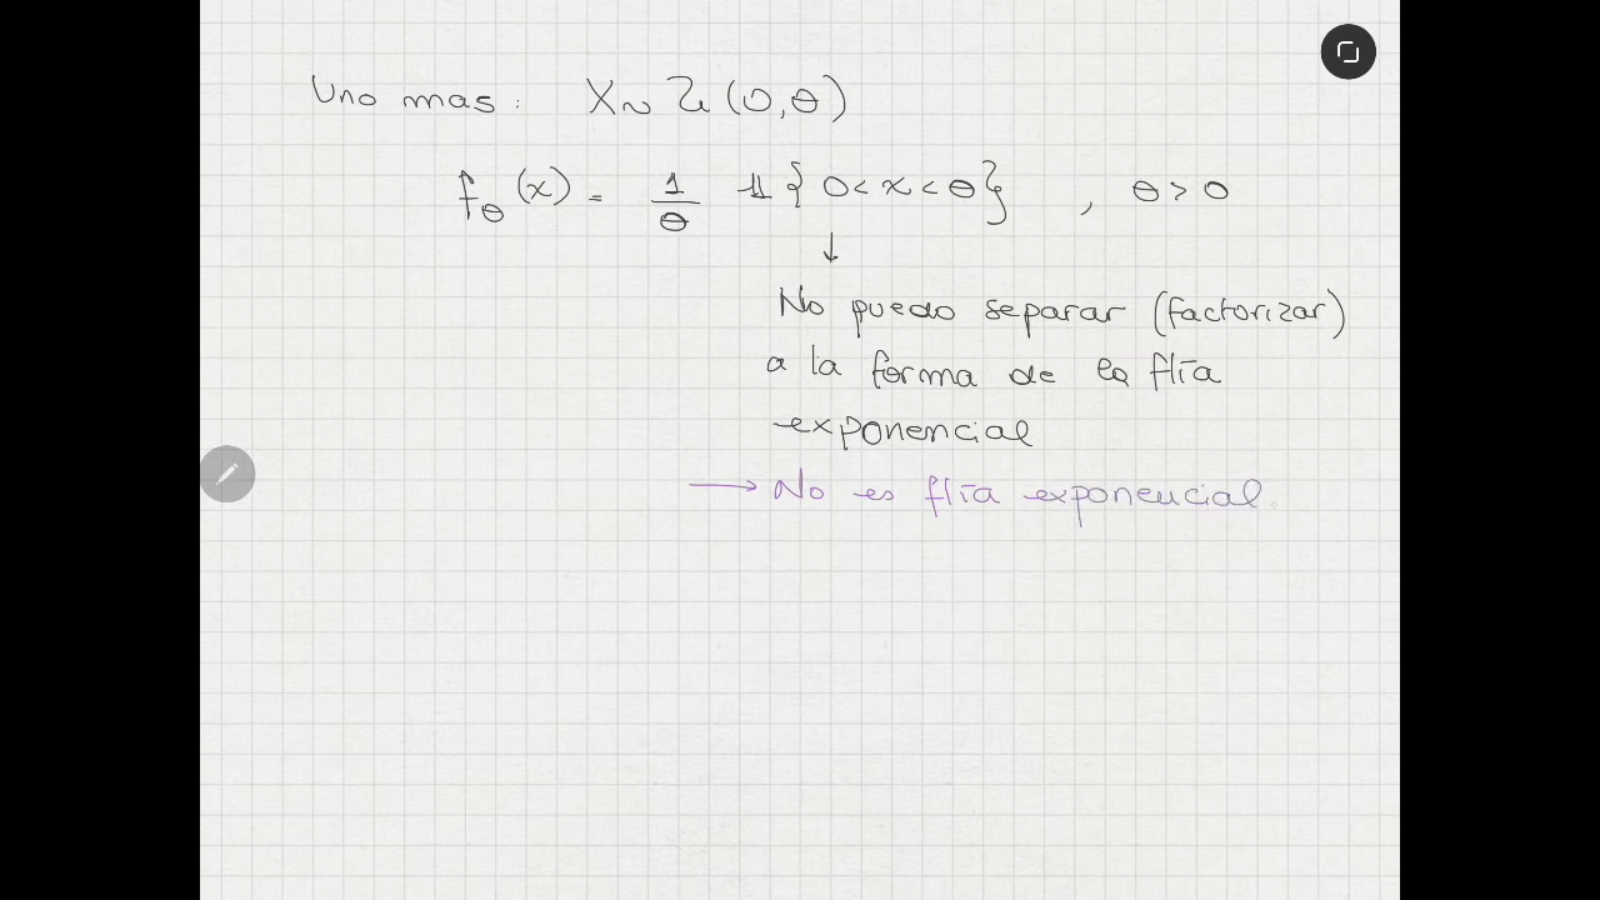 Uno mas: X ~ U(0,θ)
f_θ(x) = 1/θ 𝟙{0<x<θ} , θ>0
↓
No puedo separar (factorizar)
a la forma de la flía
exponencial
→ No es flía exponencial.